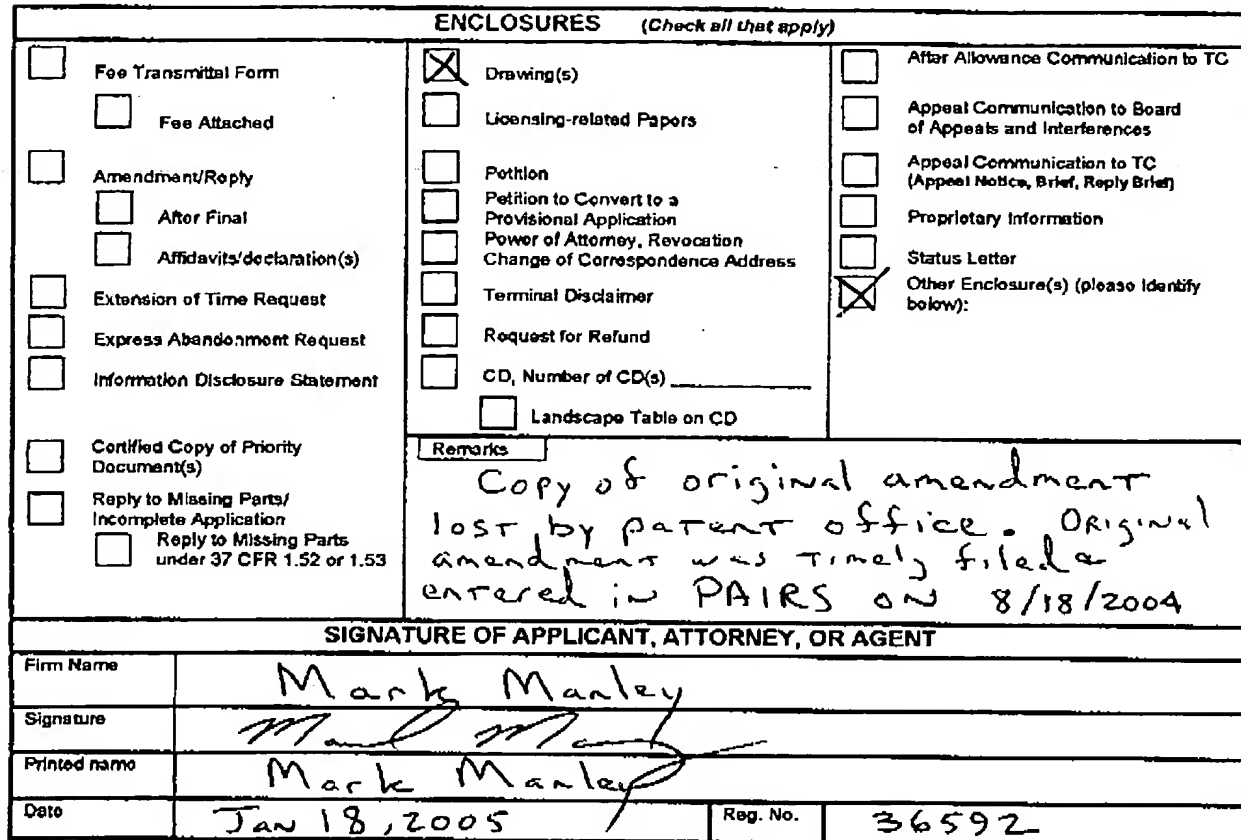 ENCLOSURES (Check all that apply)
Fee Transmittal Form
Fee Attached
Amendment/Reply
After Final
Affidavits/declaration(s)
Extension of Time Request
Express Abandonment Request
Information Disclosure Statement
Certified Copy of Priority
Document(s)
Reply to Missing Parts/
Incomplete Application
Reply to Missing Parts
under 37 CFR 1.52 or 1.53
Drawing(s)
Licensing-related Papers
Petition
Petition to Convert to a
Provisional Application
Power of Attorney, Revocation
Change of Correspondence Address
Terminal Disclaimer
Request for Refund
CD, Number of CD(s) ____________
Landscape Table on CD
After Allowance Communication to TC
Appeal Communication to Board
of Appeals and Interferences
Appeal Communication to TC
(Appeal Notice, Brief, Reply Brief)
Proprietary Information
Status Letter
Other Enclosure(s) (please Identify
below):
Remarks
Copy of original amendment
lost by patent office. Original
amendment was timely filed &
entered in PAIRS on 8/18/2004
SIGNATURE OF APPLICANT, ATTORNEY, OR AGENT
Firm Name Mark Manley
Signature
Printed name Mark Manley
Date Jan 18, 2005 Reg. No. 36592